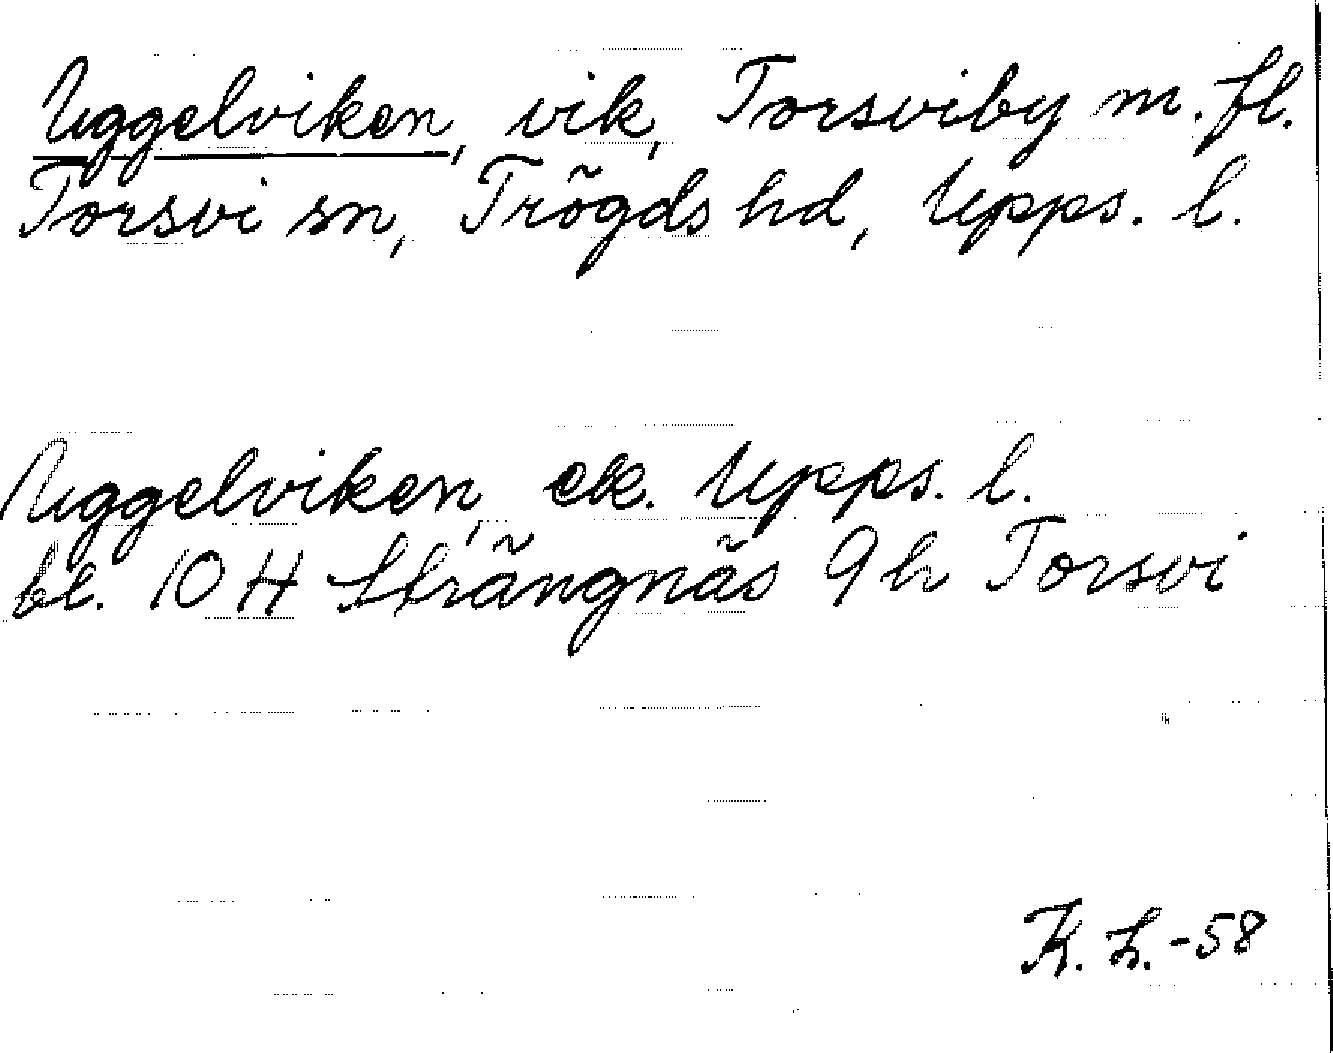 Uggelviken, vik, Torsviby m. fl.
Torsvi sn, Trögds hd, Upps. l.
Uggelviken, ek. Upps. l.
bl. 10 H Strängnäs 9 h Torsvi
K. L. -58